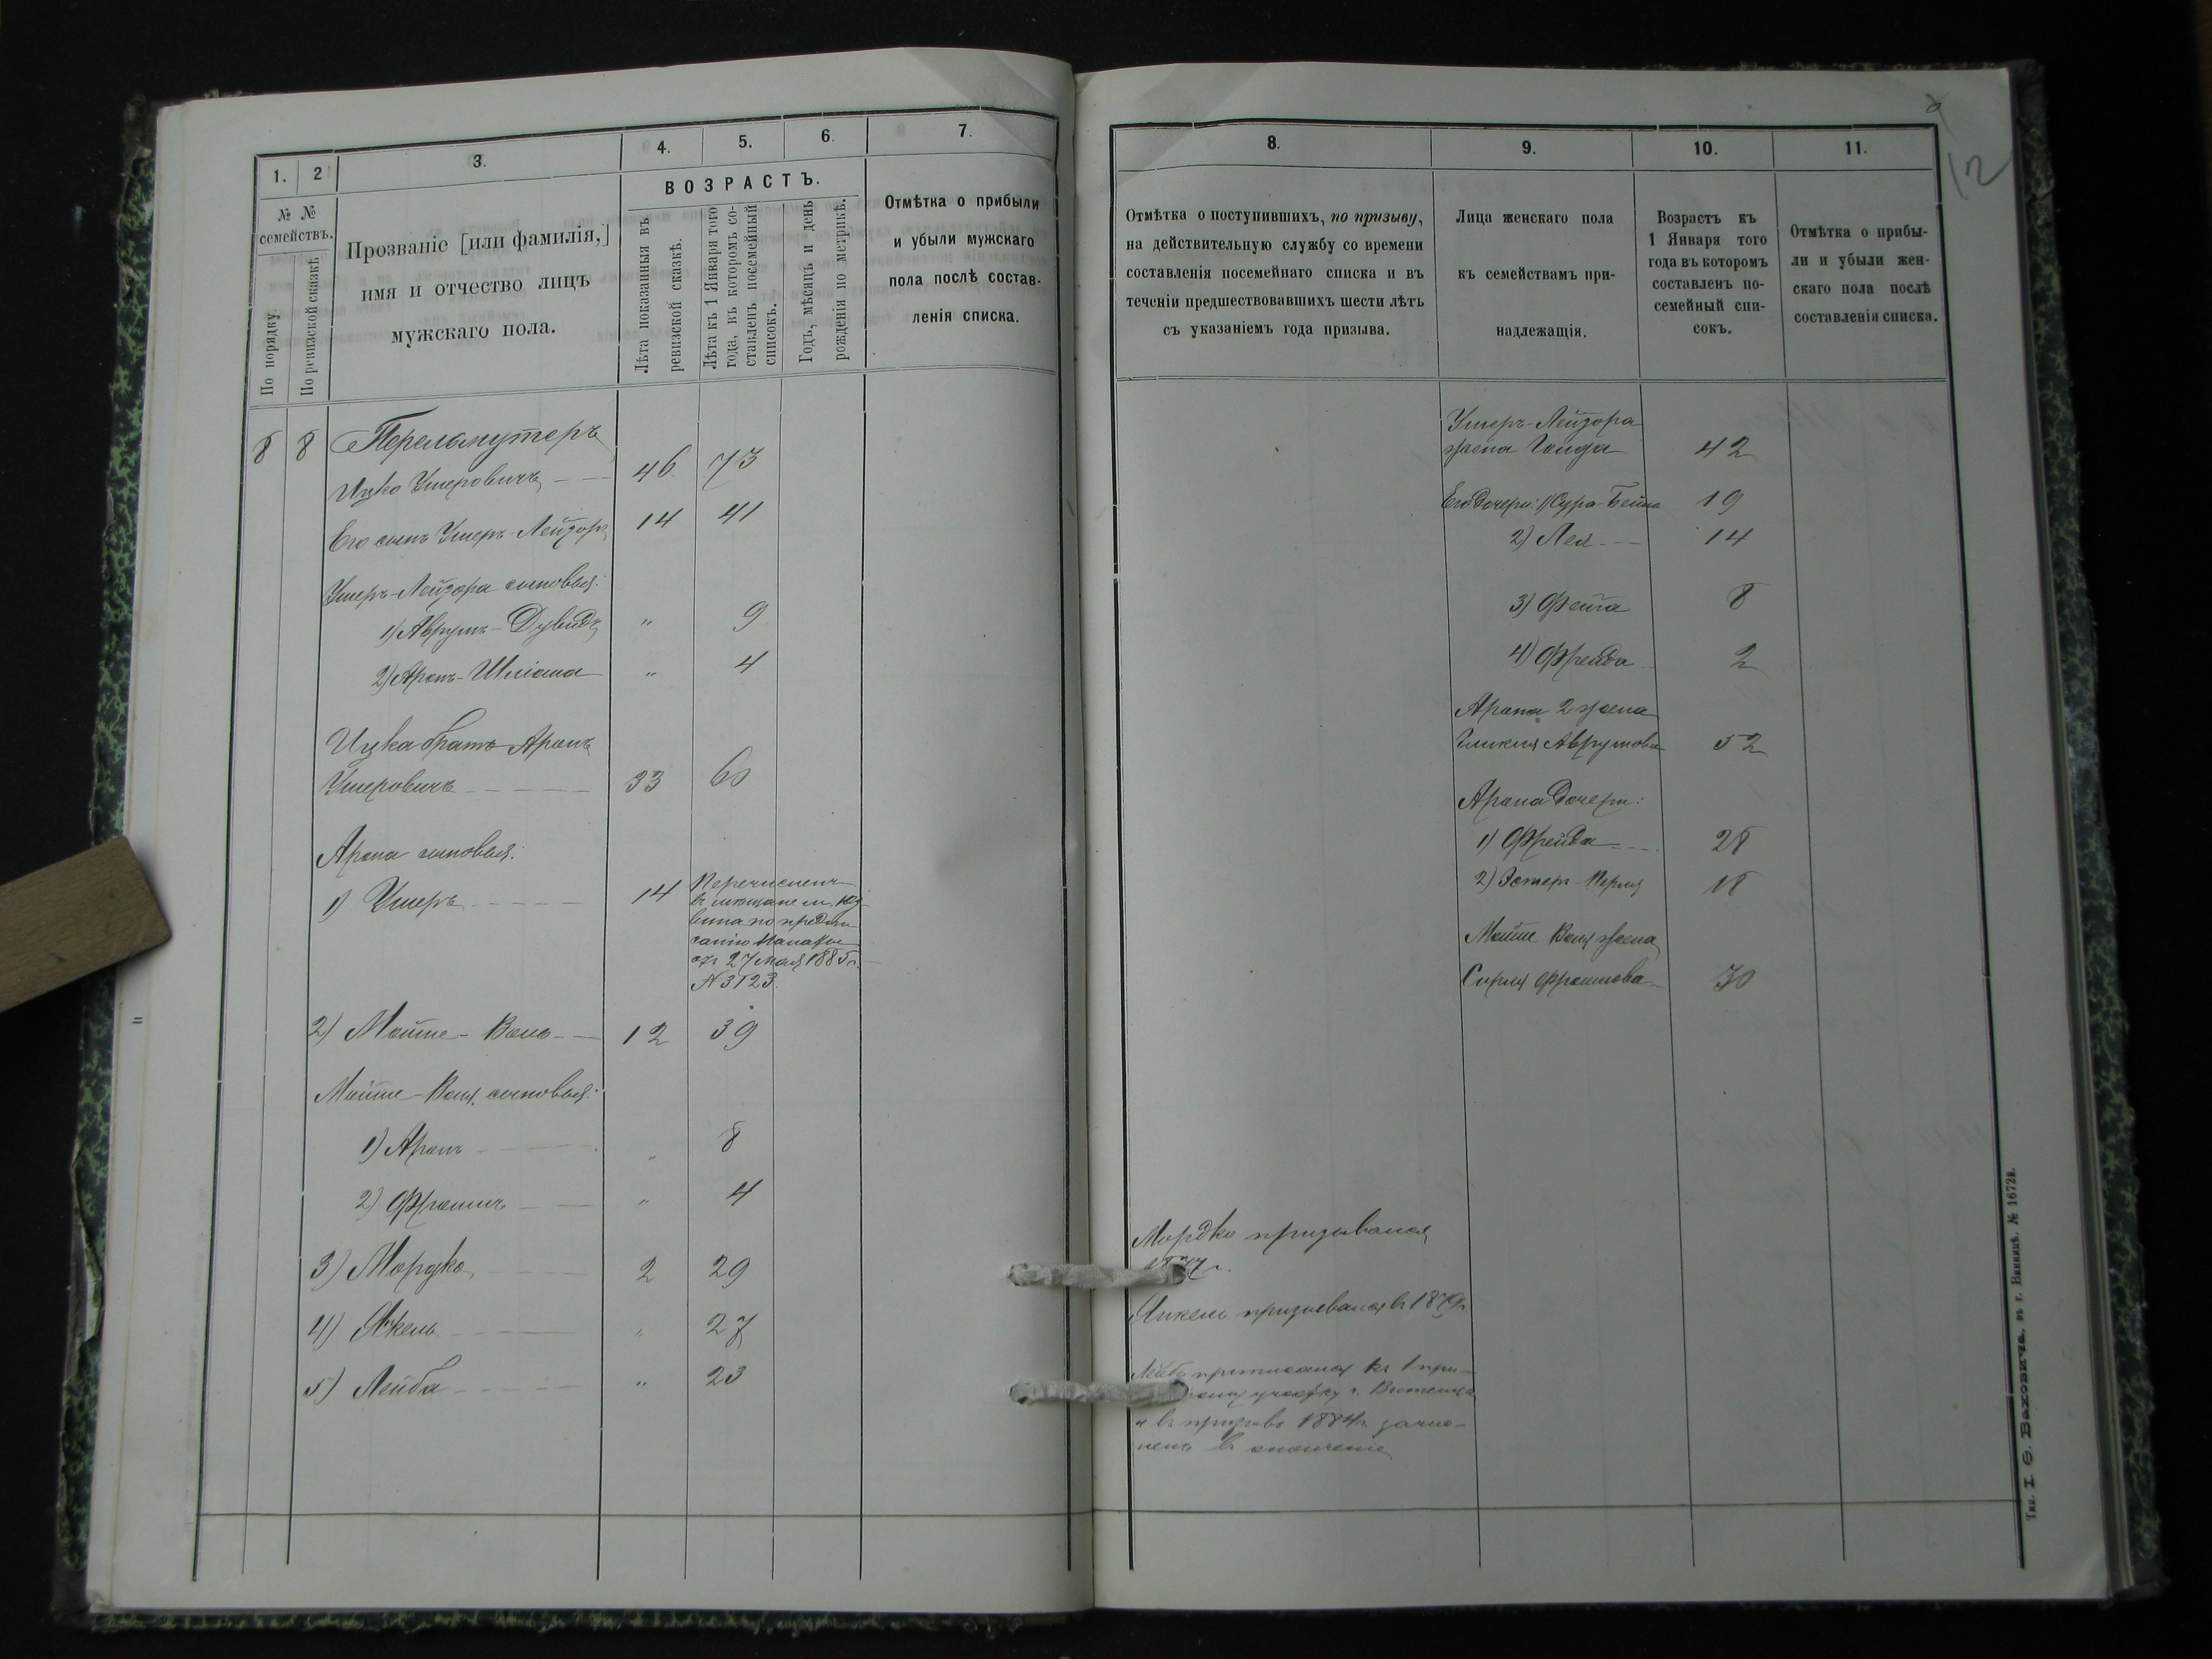 1.
2
3.
4.
5.
6.
7.
№ №
семействъ.
По порядку.
По ревизской сказкѣ
Прозваніе [или фамилія,]
имя и отчество лицъ
мужскаго пола.
ВОЗРАСТЪ.
Лѣта показанныя въ
ревизской сказкѣ.
Лѣта къ 1 Января того
года, въ которомъ со-
ставленъ посемейный
списокъ.
Годъ, мѣсяцъ и день
рожденія по метрикѣ.
Отмѣтка о прибыли
и убыли мужскаго
пола послѣ состав-
ленія списка.
8 8 Переламутеръ
Ицко Умеровичъ 46. 73
Его сынъ Умеръ-Лейзоръ 14 41
Умеръ-Лейзора сыновья:
1) Аврумъ-Дувидъ " 9
2) Аронъ-Шліома " 4
Ицка братъ Аронъ
Умеровичъ 33 60
Арона сыновья:
1) Умеръ 14 Перечисленъ
въ мещане м.
вина по предпи
санію Палаты
отъ 27 мая 1885 г.
№ 3123.
2) Мойше-Волъ 12 39
Мойше-Воля сыновья:
1) Аронъ " 8
2) Фроимъ " 4
3) Мордко 2 29
4) Янкель " 27
5) Лейба " 23
8.
9.
10.
11.
Отмѣтка о поступившихъ, по призыву,
на действительную службу со времени
составленія посемейнаго списка и въ
теченіи предшествовавшихъ шести лѣтъ
съ указаніемъ года призыва.
Лица женскаго пола
къ семействамъ при-
надлежащія.
Возрастъ къ
1 Января того
года въ которомъ
составленъ по-
семейный спи-
сокъ.
Отмѣтка о прибы-
ли и убыли жен-
скаго пола послѣ
составленія списка.
12
Умеръ-Лейзора
жена 42
Его дочери: 1) Сура-Бейла 19
2) Лея 14
3) Фейга 8
4) Фрейда 2
Арона 2 жена
Аврумова 52
Арона дочери:
1) Фрейда 28
2) Эстеръ-Перля 18
Мойше Воля жена
Сирля Фроимова 30
Мордко призывался
1877 г.
Янкель призывался въ 1879 г.
Лейба приписался къ 1 при-
участку г. Винница
и въ призывъ 1884 г. зачис-
ленъ въ ополченіе
Тип. І. Ѳ. Баховича, въ г. Винницѣ. № 1672й.